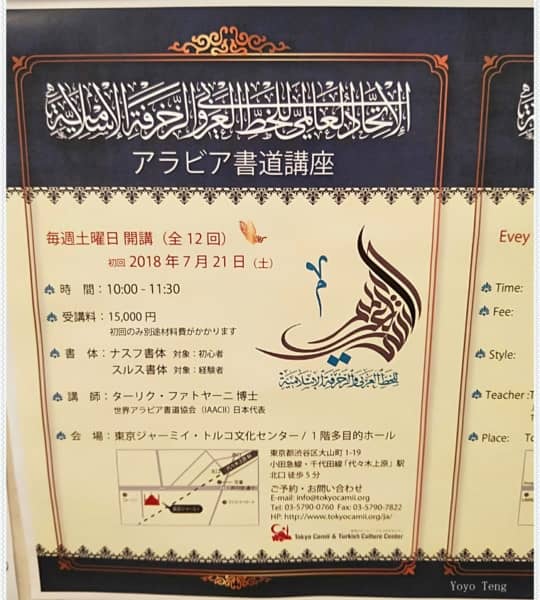 الإتحاد العالمي للخط العربي و الزخرفة الإسلامية
アラビア書道講座
毎週土曜日 開講（全 12 回）
初回 2018 年 7 月 21 日（土）
時　間：10:00 - 11:30
受講料：15,000 円
初回のみ別途材料費がかかります
書　体：ナスフ書体 対象：初心者
スルス書体 対象：経験者
للخط العربي والزخرفة الإسلامية
講　師：ターリク・ファトヤーニ 博士
世界アラビア書道協会（IAACII）日本代表
会　場：東京ジャーミイ・トルコ文化センター / 1 階多目的ホール
東京都渋谷区大山町 1-19
小田急線・千代田線「代々木上原」駅
北口 徒歩 5 分
ご予約・お問い合わせ
E-mail: info@tokyocamii.org
Tel: 03-5790-0760 Fax: 03-5790-7822
HP: http://www.tokyocamii.org/ja/
Tokyo Camii & Turkish Culture Center
Evey
Time:
Fee:
Style:
Teacher :
Place:
Yoyo Teng